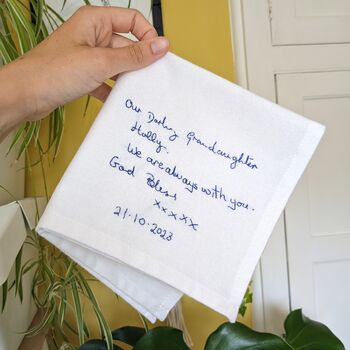 Our Darling Grandaughter
Holly.
We are always with you.
God Bless
xxxxx
21.10.2023